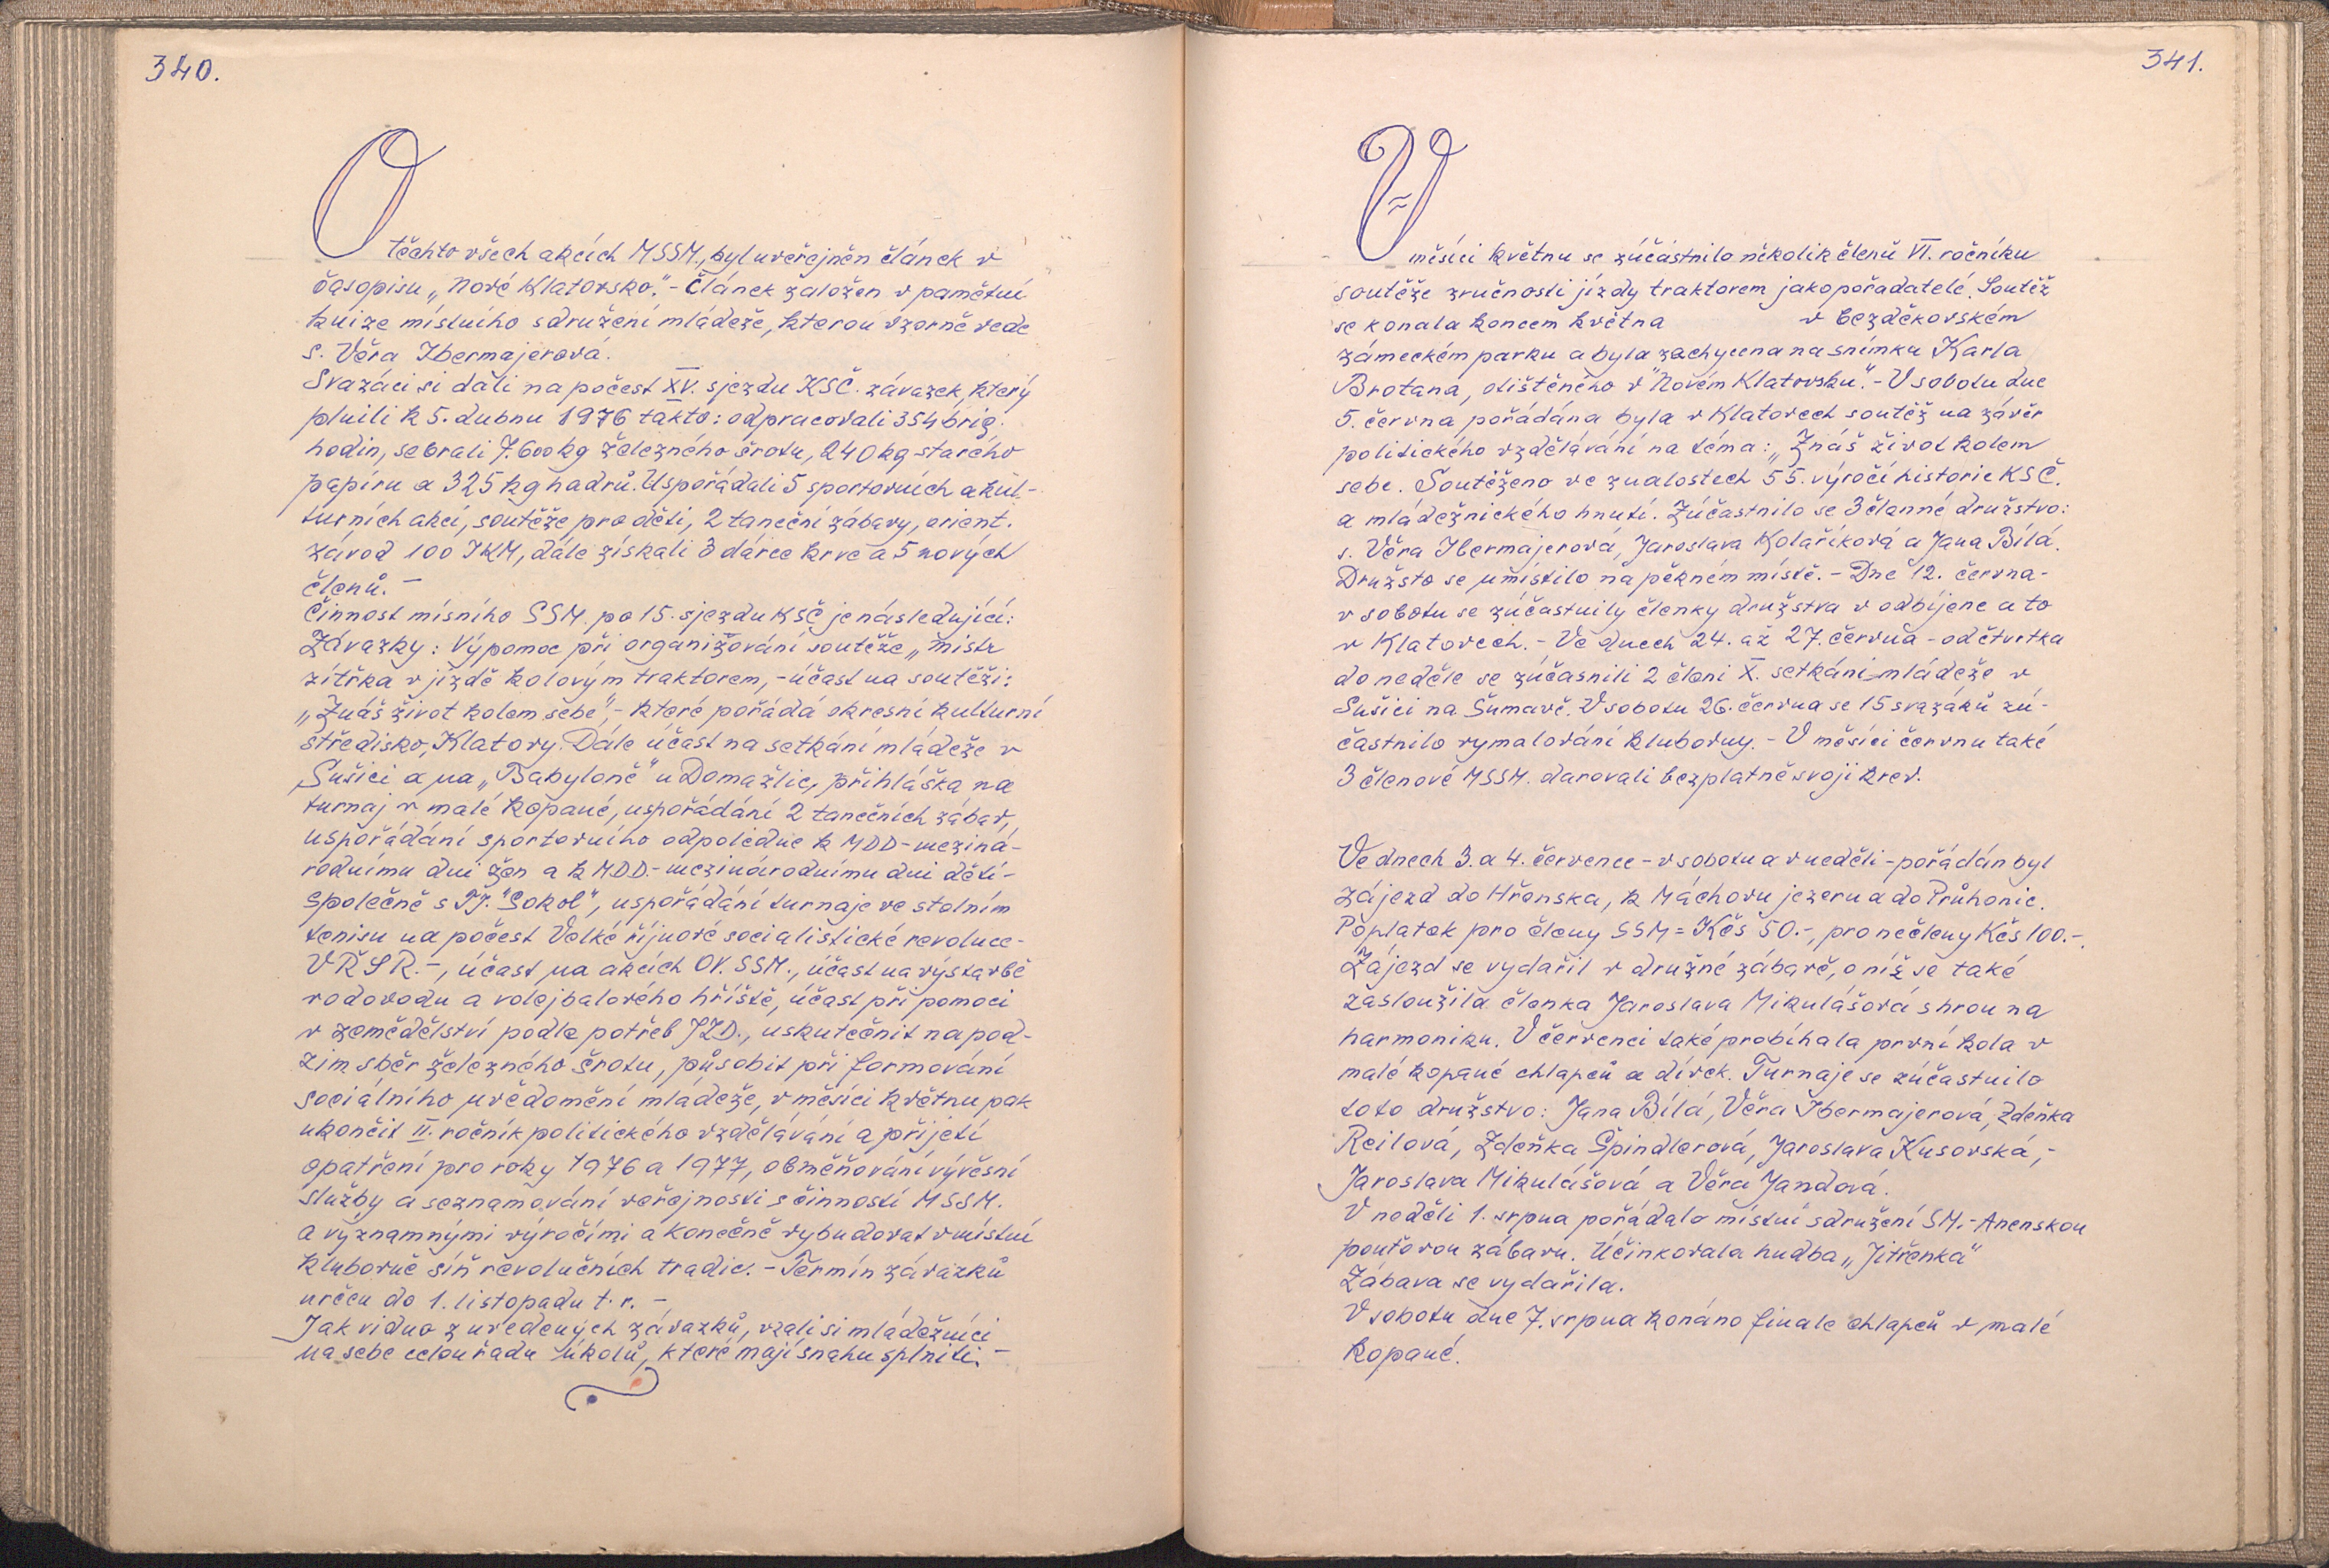 340.
O těchto všech akcích MSSM., byl uveřejněn článek v
časopisu „Nové Klatovsko." - Článek založen v pamětní
knize místního sdružení mládeže, kterou vzorně vede
s. Věra Ibermajerová.
Svazáci si dali na počest XV. sjezdu KSČ. závazek, který
plnili k 5. dubnu 1976 takto: odpracovali 354 brig.
hodin, sebrali 7.600 kg železného šrotu, 240 kg starého
papíru a 325 kg hadrů. Uspořádali 5 sportovních a kul-
turních akcí, soutěže pro děti, 2 taneční zábavy, orient.
závod 100 JKM, dále získali 3 dárce krve a 5 nových
členů. -
Činnost mísního SSM. po 15. sjezdu KSČ je následující:
Závazky: Výpomoc při organizování soutěže „Mistr
zítřka v jízdě kolovým traktorem, - účast na soutěži:
„Znáš život kolem sebe", - které pořádá okresní kulturní
středisko, Klatovy. Dále účast na setkání mládeže v
Sušici a na „Babyloně" u Domažlic, přihláška na
turnaj v malé kopané, uspořádání 2 tanečních zábav,
uspořádání sportovního odpoledne k MDD - meziná-
rodnímu dni žen a k MDD. - mezinárodnímu dni dětí -
společně s TJ. "Sokol", uspořádání turnaje ve stolním
tenisu na počest Velké říjnové socialistické revoluce -
VŘSR. -, účast na akcích OV. SSM., účast na výstavbě
vodovodu a volejbalového hřiště, účast při pomoci
v zemědělství podle potřeb JZD., uskutečnit na pod-
zim sběr železného šrotu, působit při formování
sociálního uvědomění mládeže, v měsíci květnu pak
ukončit II. ročník politického vzdělávání a přijetí
opatření pro roky 1976 a 1977, obměňování vývěsní
služby a seznamování veřejnosti s činností MSSM.
a významnými výročími a konečně vybudovat v místní
klubovně síň revolučních tradic. - Termín závazků
určen do 1. listopadu t. r. -
Jak vidno z uvedených závazků, vzali si mládežníci
na sebe celou řadu úkolů, které mají snahu splniti. -
341.
V měsíci květnu se zúčástnilo několik členů VI. ročníku
soutěže zručnosti jízdy traktorem jako pořadatelé. Soutěž
se konala koncem května v bezděkovském
zámeckém parku a byla zachycena na snímku Karla
Brotana, otištěného v "Novém Klatovsku". - V sobotu dne
5. června pořádána byla v Klatovech soutěž na závěr
politického vzdělávání na téma: „Znáš život kolem
sebe. Soutěženo ve znalostech 55. výročí historie KSČ.
a mládežnického hnutí. Zúčastnilo se 3členné družstvo:
s. Věra Ibermajerová, Jaroslava Kolaříková a Jana Bílá.
Družsto se umístilo na pěkném místě. - Dne 12. června -
v sobotu se zúčastnily členky družstva v odbíjené a to
v Klatovech. - Ve dnech 24. až 27. června - od čtvrtka
do neděle se zúčasnili 2 členi X. setkání mládeže v
Sušici na Šumavě. V sobotu 26. června se 15 svazáků zú-
častnilo vymalování klubovny. - V měsíci červnu také
3 členové MSSM. darovali bezplatně svoji krev.
Ve dnech 3. a 4. července - v sobotu a v neděli - pořádán byl
zájezd do Hřenska, k Máchovu jezeru a do Průhonic.
Poplatek pro členy SSM = Kčs 50.-, pro nečleny Kčs 100.-.
Zájezd se vydařil v družné zábavě, o níž se také
zasloužila členka Jaroslava Mikulášová s hrou na
harmoniku. V červenci také probíhala první kola v
malé kopané chlapců a dívek. Turnaje se zúčastnilo
toto družstvo: Jana Bílá, Věra Ibermajerová, Zdeňka
Reilová, Zdeňka Špindlerová, Jaroslava Kusovská, -
Jaroslava Mikulášová a Věra Jandová.
V neděli 1. srpna pořádalo místní sdružení SM. - Anenskou
pouťovou zábavu. Účinkovala hudba „Jitřenka"
Zábava se vydařila.
V sobotu dne 7. srpna konáno finale chlapců v malé
kopané.